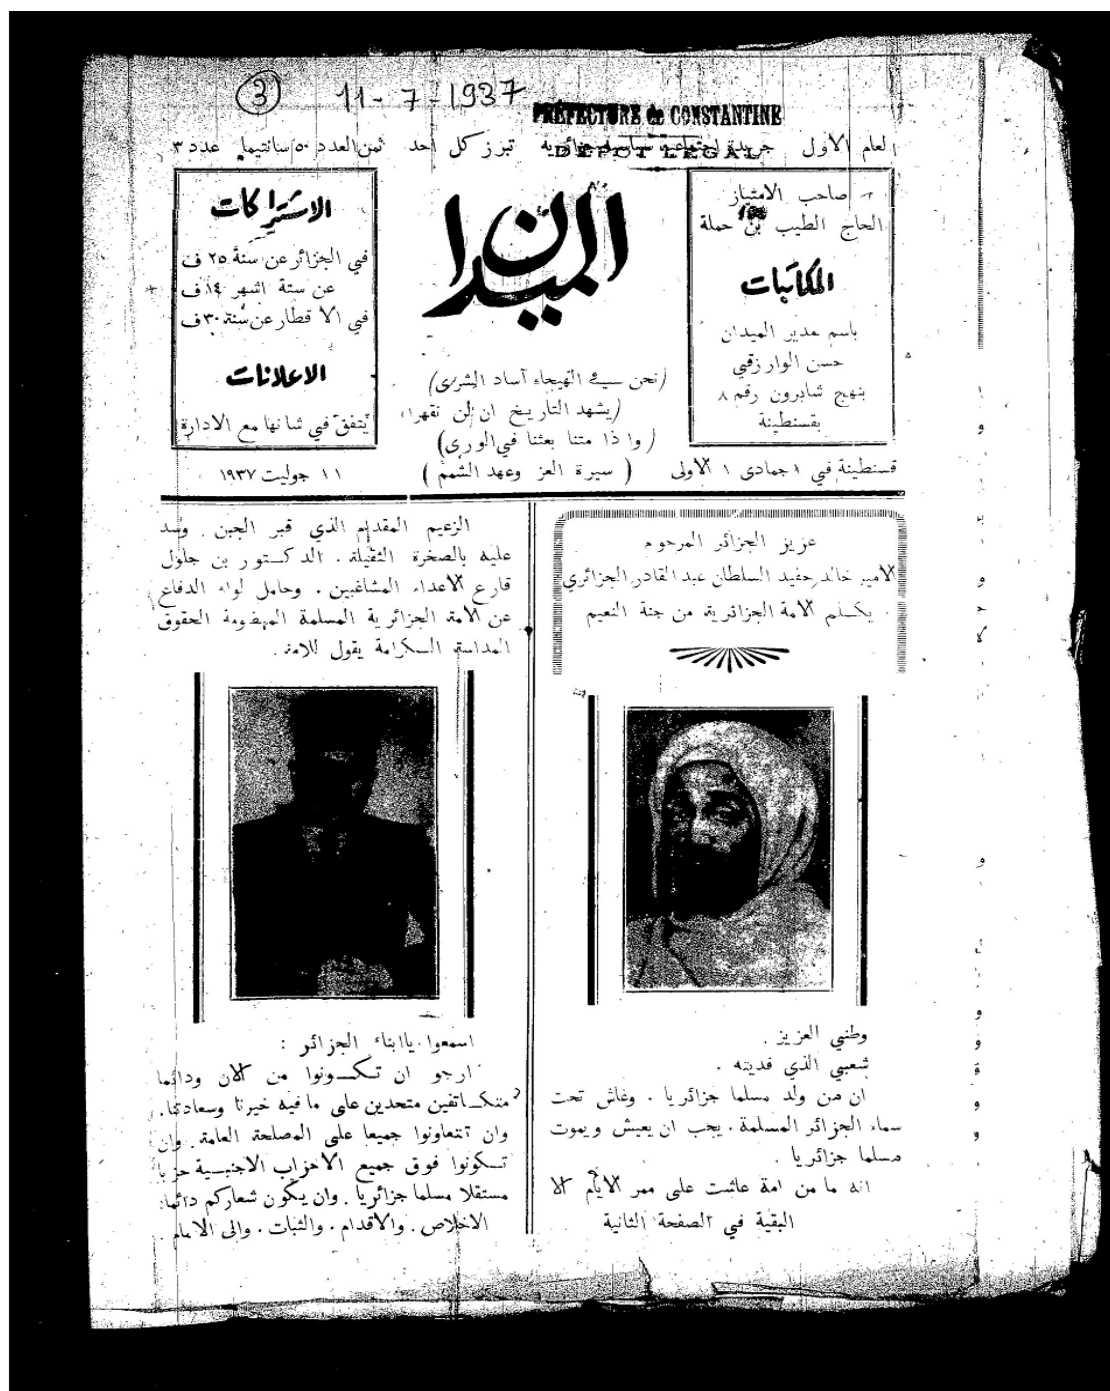 3
11-7-1937
PRÉFECTURE de CONSTANTINE
DEPOT LEGAL
العام الاول جريدة اجتماعية سياسية جزائرية تبرز كل احد ثمن العدد ٥٠ سانتيما عدد ٣
صاحب الامتياز
الحاج الطيب بن حملة
المكاتبات
باسم مدير الميدان
حسن الوارزقي
بنهج شابرون رقم ٨
بقسنطينة
الميدان
(نحن في الهيجاء آساد الشرى)
(يشهد التاريخ ان لن نقهرا)
(واذا متنا بعثنا في الورى)
(سيرة العز وعهد الشمم)
الاشتراكات
في الجزائر عن سنة ٢٥ ف
عن ستة اشهر ١٤ ف
في الاقطار عن سنة ٣٠ ف
الاعلانات
يتفق في شانها مع الادارة
قسنطينة في جمادى الاولى
١١ جوليت ١٩٣٧
عزيز الجزائر المرحوم
الامير خالد حفيد السلطان عبد القادر الجزائري
يكلم الامة الجزائرية من جنة النعيم
وطني العزيز .
شعبي الذي فديته .
ان من ولد مسلما جزائريا . وعاش تحت
سماء الجزائر المسلمة . يجب ان يعيش ويموت
مسلما جزائريا .
انه ما من امة عاشت على ممر الايام الا
البقية في الصفحة الثانية
الزعيم المقدام الذي قبر الجبن وسد
عليه بالصخرة الثقيلة . الدكتور بن جلول
قارع الاعداء المشاغبين . وحامل لواء الدفاع
عن الامة الجزائرية المسلمة المهضومة الحقوق
المداسة الكرامة يقول للامة .
اسمعوا يا ابناء الجزائر :
ارجو ان تكونوا من الان ودائما
متكاتفين متحدين على ما فيه خيرنا وسعادتنا .
وان تتعاونوا جميعا على المصلحة العامة . وان
تكونوا فوق جميع الاحزاب الاجنبية حزبا
مستقلا مسلما جزائريا . وان يكون شعاركم دائما :
الاخلاص . والاقدام . والثبات . والى الامام .